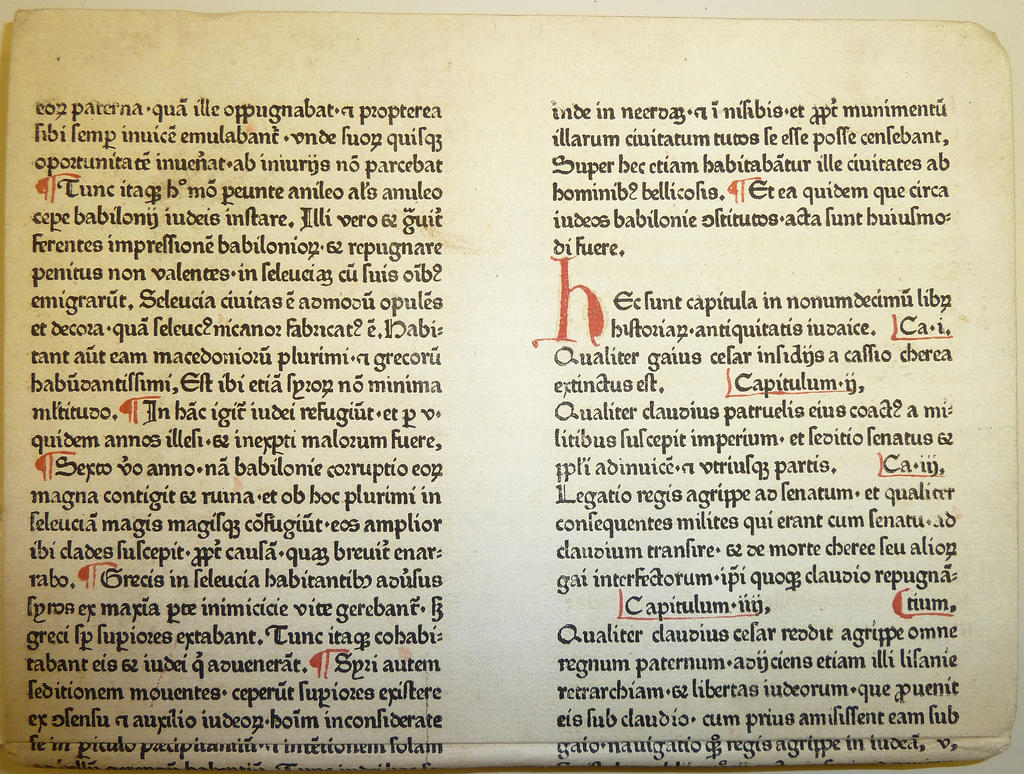 eoꝝ paterna·quā ille oꝓpugnabat·⁊ ꝓpterea
sibi semꝑ inuicē emulabant᷑·vnde suoꝝ quisqꝫ
oportunitatē inueñat·ab iniurijs nō parcebat
¶Tunc itaqꝫ hº mō ꝑeunte anileo al's anuleo
cepe babilonij iudeis instare. Illi vero & g̃uit᷑
ferentes impressionē babilonioꝝ·& repugnare
penitus non valentes·in seleuciaꝫ cū suis oībꝰ
emigrarūt. Seleucia ciuitas ē admodū opulēs
et decora·quā seleucꝰ nicanor fabricatꝰ ē. Habi⸗
tant aūt eam macedoniorū plurimi·⁊ grecorū
habūdantissimi, Est ibi etiā syroꝝ nō minima
ml'titudo. ¶In hāc igit᷑ iudei refugiūt·et ꝑ v·
quidem annos illesi·& inexꝑti malorum fuere,
¶Sexto v̓o anno·nā babilonie corruptio eoꝝ
magna contigit & ruina·et ob hoc plurimi in
seleuciā magis magisqꝫ cōfugiūt·eos amplior
ibi clades suscepit·ꝓpt᷑ causā·quaꝫ breuit᷑ enar⸗
rabo. ¶Grecis in seleucia habitantibꝫ adu̓sus
syros ex maxīa ꝑte inimicicie vite gerebant᷑·sꝫ
greci sꝑ suꝑiores extabant. Tunc itaqꝫ cohabi⸗
tabant eis & iudei q̇ aduenerāt. ¶Syri autem
seditionem mouentes·ceperūt suꝑiores existere
ex ↄsensu ⁊ auxilio iudeoꝝ·hoīm inconsiderate
se in ꝑiculo p̄cipitantiū·⁊ intētionem solam
inde in neerdaꝫ·⁊ ī nisibis·et ꝓpt᷑ munimentū
illarum ciuitatum tutos se esse posse censebant,
Super hec etiam habitabātur ille ciuitates ab
hominibꝰ bellicosis. ¶Et ea quidem que circa
iudeos babilonie ↄstitutos·acta sunt huiusmo⸗
di fuere.
hEc sunt capitula in nonumdecimū libꝝ
historiaꝝ·antiquitatis iudaice. Ca·i.
Qualiter gaius cesar insidijs a cassio cherea
extinctus est. Capitulum·ij,
Qualiter claudius patruelis eius coactꝰ a mi⸗
litibus suscepit imperium·et seditio senatus &
ppl'i adinuicē·⁊ vtriusqꝫ partis. Ca·iij,
Legatio regis agrippe ad senatum·et qualiter
consequentes milites qui erant cum senatu·ad
claudium transire·& de morte cheree seu alioꝝ
gai interfectorum·ip̄i quoqꝫ claudio repugnā⸗
Capitulum·iiij, tium.
Qualiter claudius cesar reddit agrippe omne
regnum paternum·adijciens etiam illi lisanie
retrarchiam·& libertas iudeorum·que ꝓuenit
eis sub claudio·cum prius amisissent eam sub
gaio·nauigatio qꝫ regis agrippe in iudeā, v,